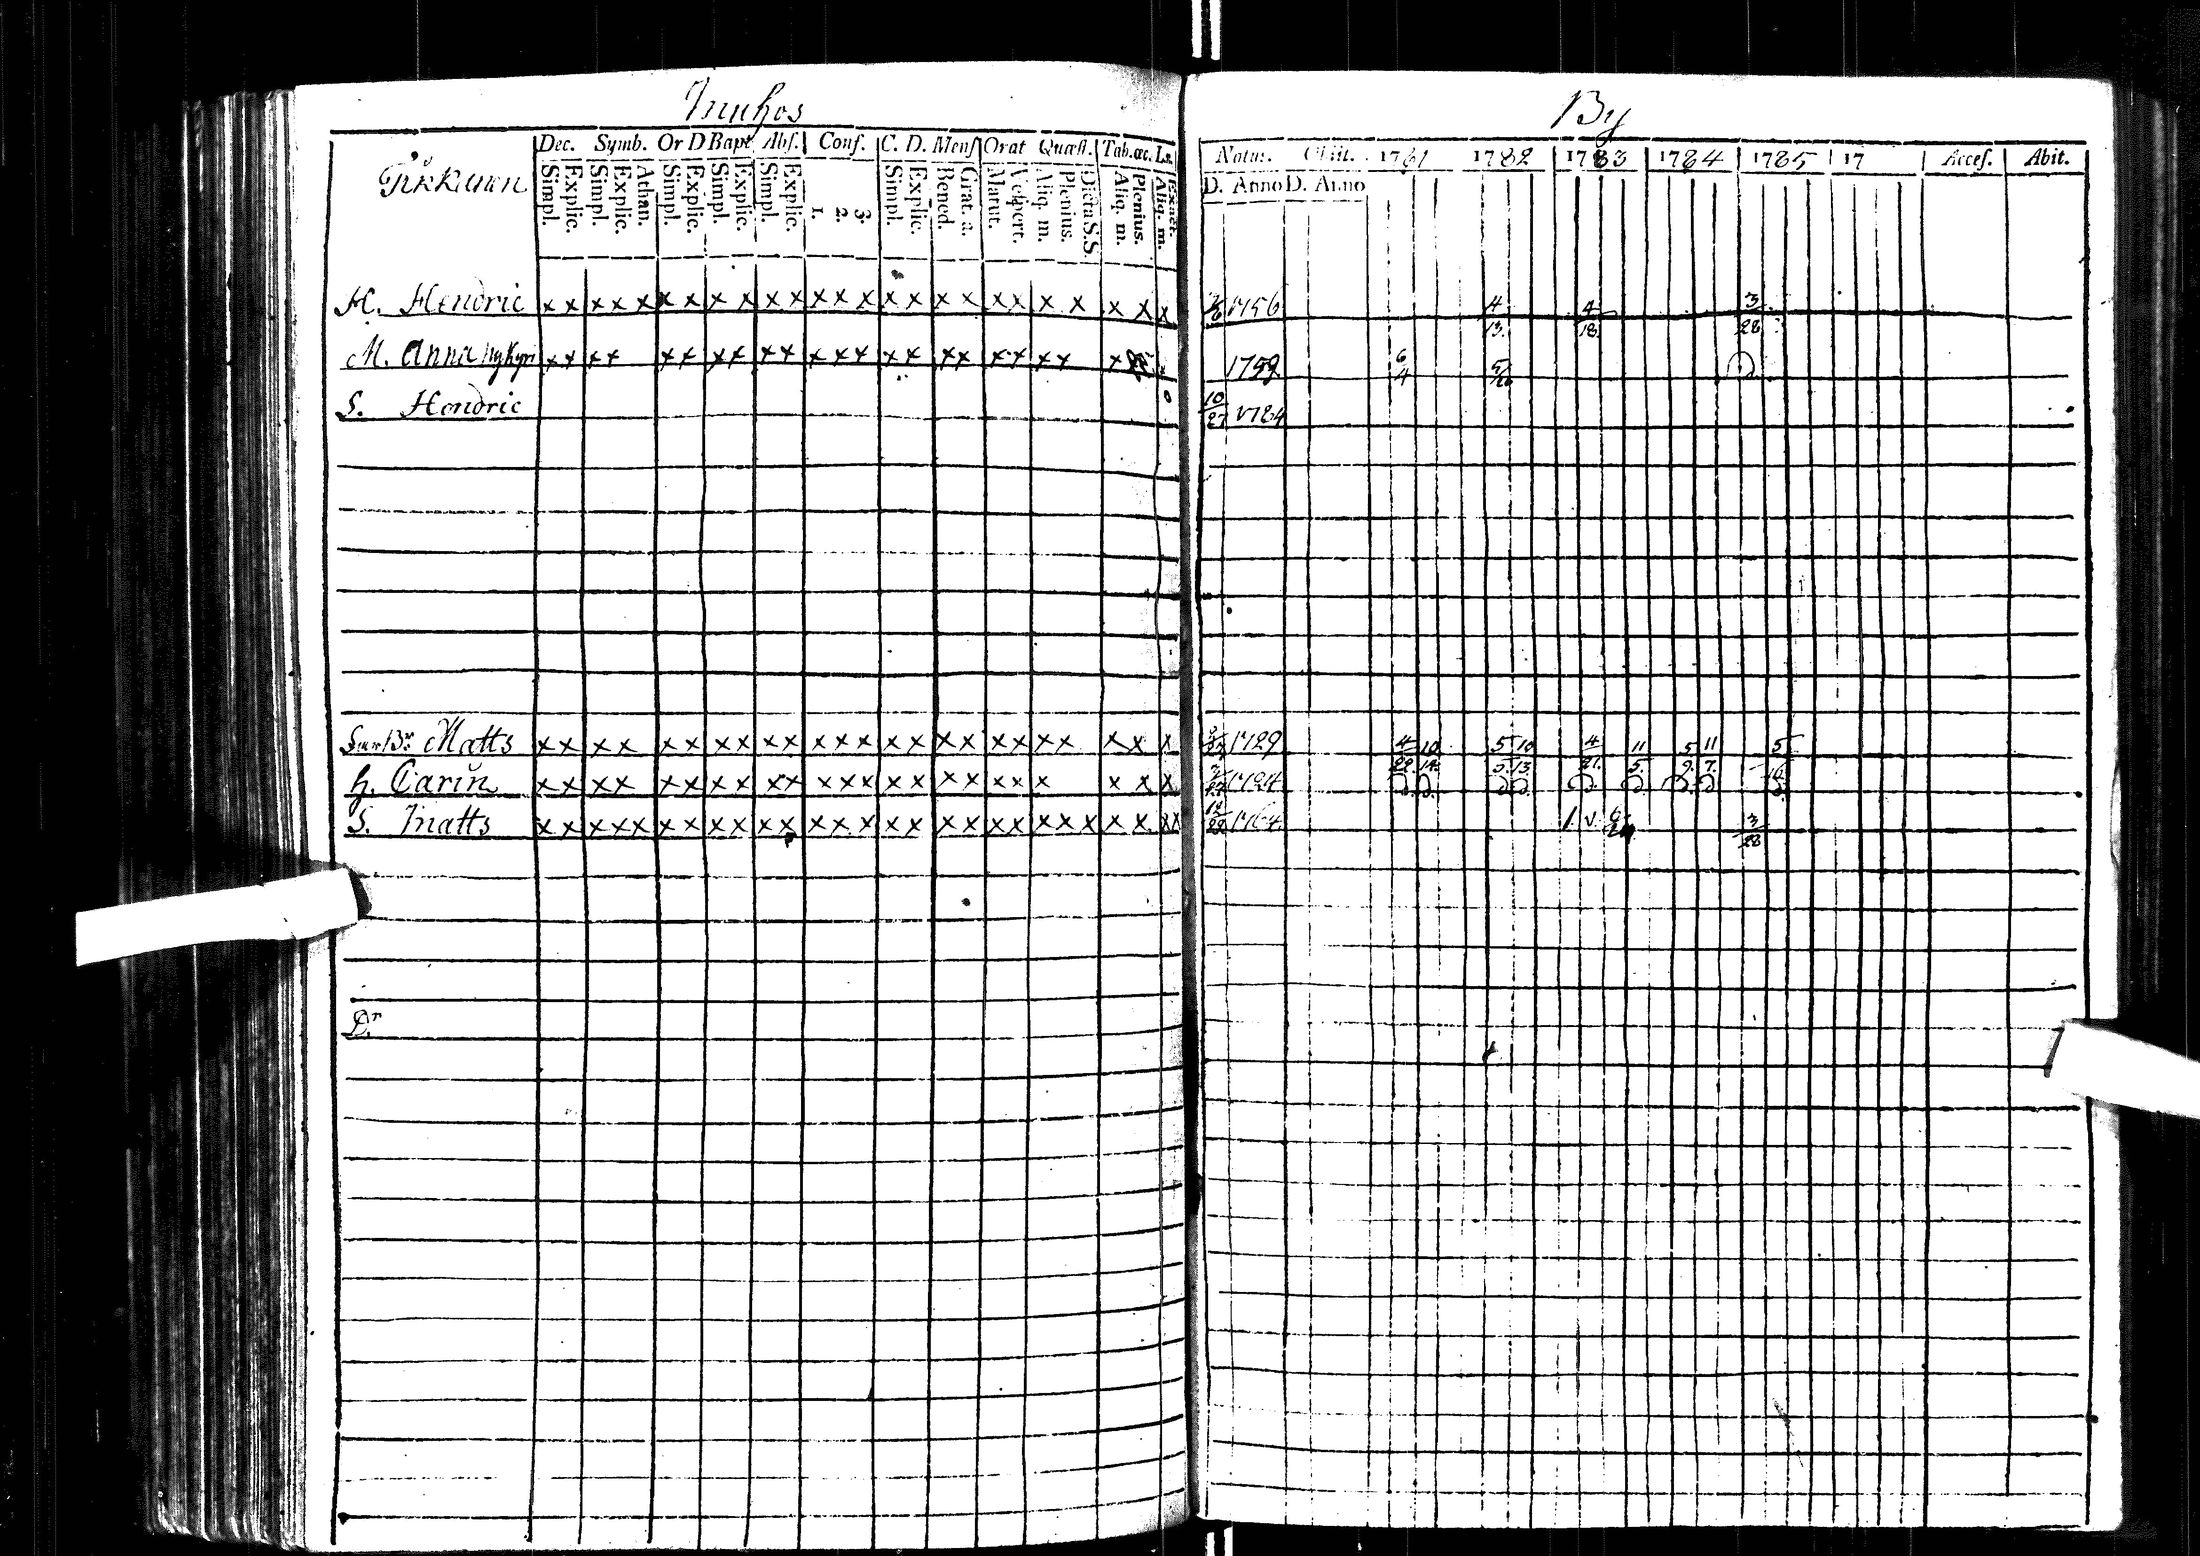 Muhos By
Pikkanen
Dec. Symb. Or D Bapt Abs. Conf. C. D. Mens Orat Quæst. Tab. œc. L.
Simpl. Explic. Simpl. Explic. Athan. Simpl. Explic. Simpl. Explic. Simpl. Explic. 1. 2. 3. Simpl. Explic. Bened. Grat. a. Matut. Vespert. Aliq. m. Plenius. Dicta S.S. Aliq. m. Plenius. Aliq. m. Exact.
Natus. Obiit. 1781 1782 1783 1784 1785 17 Acces. Abit.
D. Anno D. Anno
H. Hendric x x x x x x x x x x x x x x x x x x x x x x x x 1756 4/13. 4/18. 3/28
M. Anna x x x x x x x x x x x x x x x x x x x x x 1759 6/4 5/26
S. Hendric 10/27 1784
Matts x x x x x x x x x x x x x x x x x x x x x x x 1729 4/22. 10/14. 5/5. 10/13. 4/21. 11/5. 5/9. 11/7. 5/16.
H. Carin x x x x x x x x x x x x x x x x x x x x x x 1724
S. Matts x x x x x x x x x x x x x x x x x x x x x x x x x x x 1764 3/28
Dr